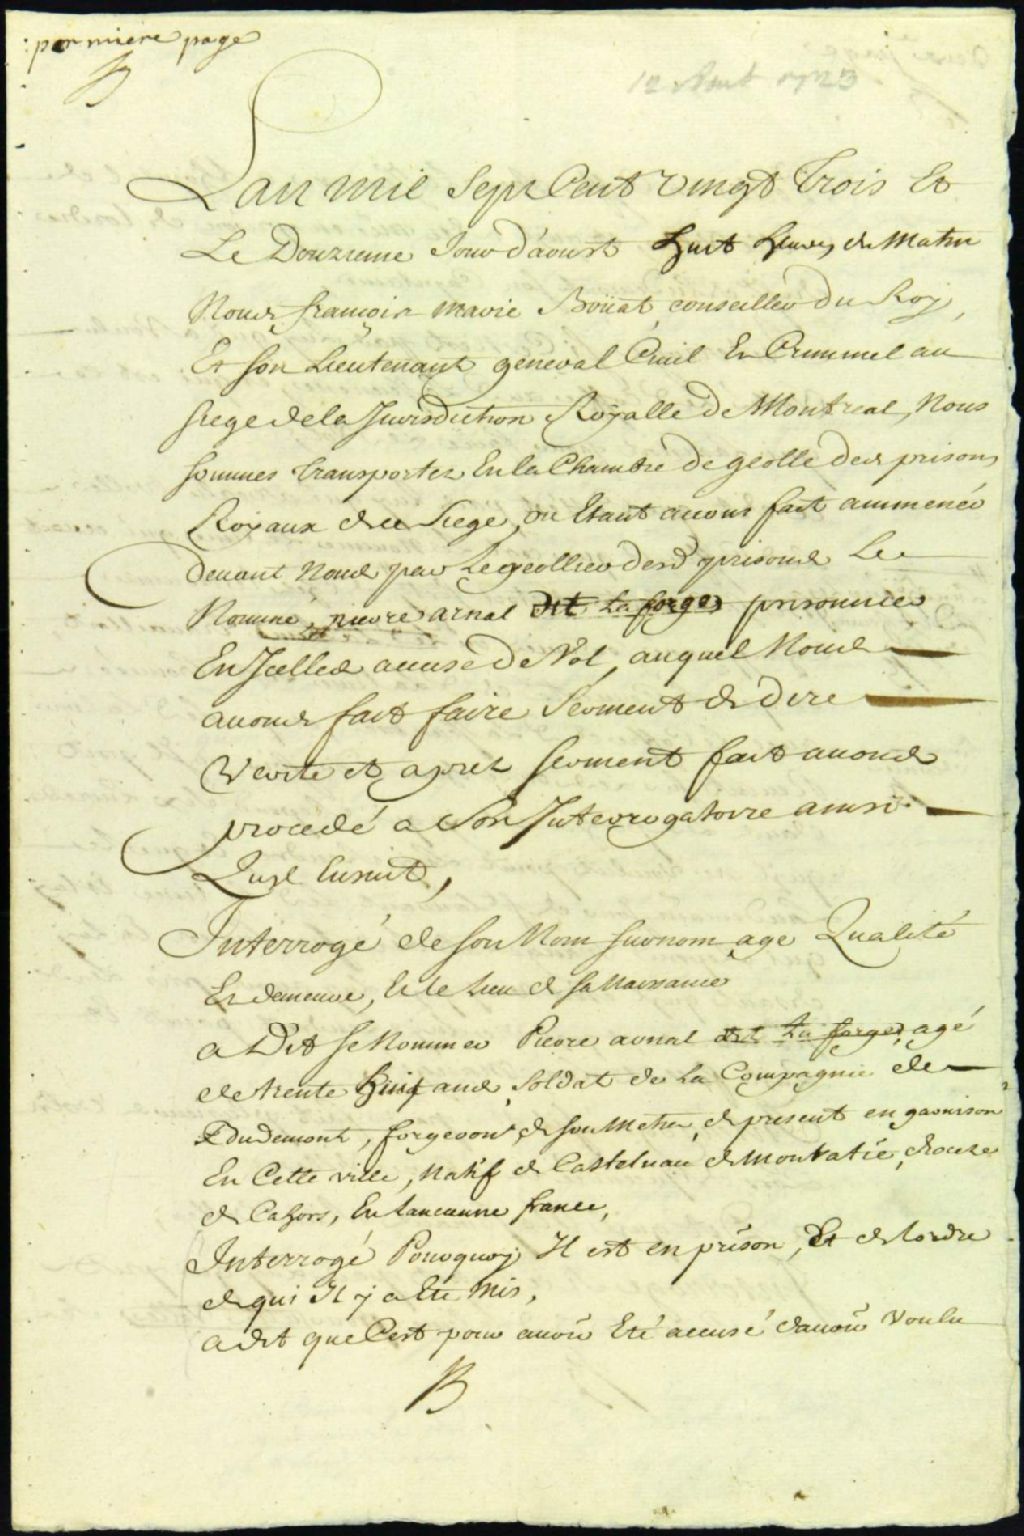 permiere page
B
12 Aout 1723
Lan mil Sept Cent vingt Trois Et
Le Douzieme Jour d'aoust huit heures du Matin
Nous françois marie Boüat conseiller du Roy,
Et son Lieutenant general Civil Et Criminel au
siege de la Jurisdiction Royalle de Montreal, Nous
sommes transportez En la Chambre de geolle des prisons
Royaux de ce siege, ou Etant avons fait ammener
devant Nous par Le geollier desd prisons Le
Nommé pierre arnal dit La forge prisonnier
En Icelles accusé de Vol, auquel Nous
avons fait faire Serment de dire
Verité et aprez serment fait avons
procedé a Son Interrogatoire ainsi
Quil Ensuit,
Interrogé de son Nom surnom age Qualité
Et demeure, Et le Lieu de sa Naissance
a Dit se Nommer Pierre arnal dit La forge, agé
de trente huit ans, soldat de la Compagnie de
Dudemont, forgeron de son Metier, de present en garnison
En Cette ville, Natif de Castelnau de Montratié, diocese
de Cahors, En lancienne france,
Interrogé Pourquoy Il est en prison, Et de lordre
de qui Il y a Eté Mis,
a dit que Cest pour avoir Eté accusé davoir voulu
B